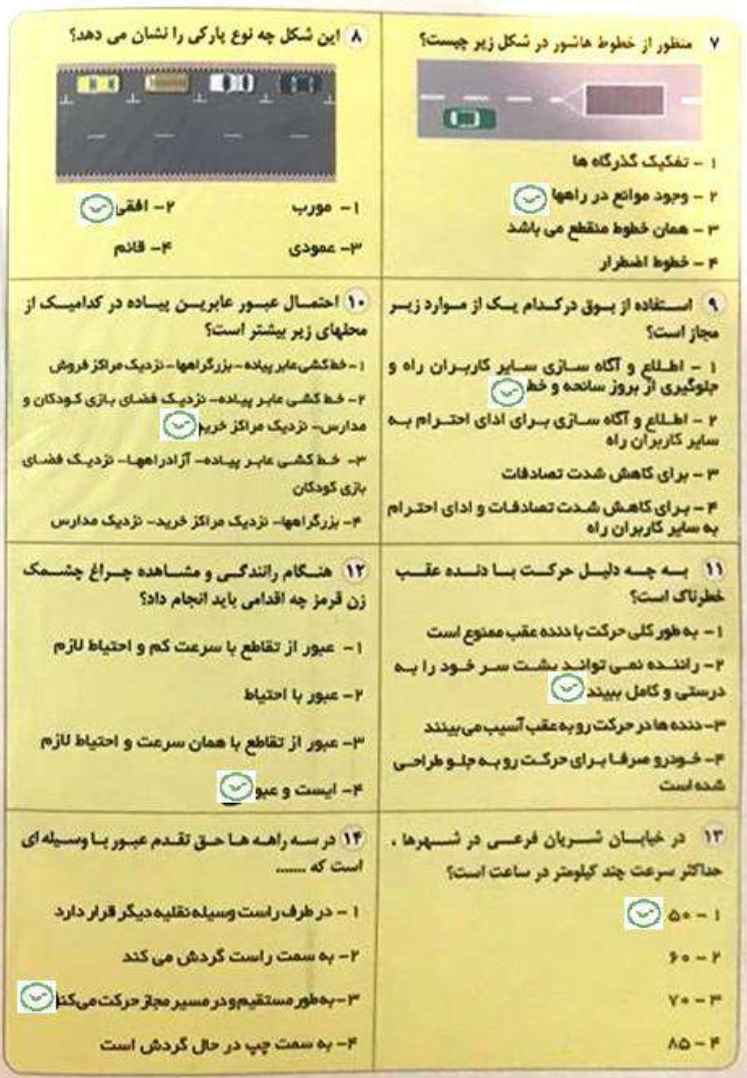 ۷ منظور از خطوط هاشور در شکل زیر چیست؟
۱ - تفکیک گذرگاه ها
۲ - وجود موانع در راهها
۳ - همان خطوط منقطع می باشد
۴ - خطوط اضطرار
۸ این شکل چه نوع پارکی را نشان می دهد؟
۱- مورب
۲- افقی
۳- عمودی
۴- قائم
۹ استفاده از بوق در کدام یک از موارد زیر
مجاز است؟
۱ - اطلاع و آگاه سازی سایر کاربران راه و
جلوگیری از بروز سانحه و خط
۲ - اطلاع و آگاه سازی برای ادای احترام به
سایر کاربران راه
۳ - برای کاهش شدت تصادفات
۴ - برای کاهش شدت تصادفات و ادای احترام
به سایر کاربران راه
۱۰ احتمال عبور عابرین پیاده در کدامیک از
محلهای زیر بیشتر است؟
۱- خط کشی عابر پیاده - بزرگراهها - نزدیک مراکز فروش
۲- خط کشی عابر پیاده - نزدیک فضای بازی کودکان و
مدارس - نزدیک مراکز خرید
۳- خط کشی عابر پیاده - آزادراهها - نزدیک فضای
بازی کودکان
۴- بزرگراهها - نزدیک مراکز خرید - نزدیک مدارس
۱۱ به چه دلیل حرکت با دنده عقب
خطرناک است؟
۱- به طور کلی حرکت با دنده عقب ممنوع است
۲- راننده نمی تواند پشت سر خود را به
درستی و کامل ببیند
۳- دنده ها در حرکت رو به عقب آسیب می بینند
۴- خودرو صرفا برای حرکت رو به جلو طراحی
شده است
۱۲ هنگام رانندگی و مشاهده چراغ چشمک
زن قرمز چه اقدامی باید انجام داد؟
۱- عبور از تقاطع با سرعت کم و احتیاط لازم
۲- عبور با احتیاط
۳- عبور از تقاطع با همان سرعت و احتیاط لازم
۴- ایست و عبو
۱۳ در خیابان شریان فرعی در شهرها ،
حداکثر سرعت چند کیلومتر در ساعت است؟
۱ - ۵۰
۲ - ۶۰
۳ - ۷۰
۴ - ۸۵
۱۴ در سه راهه ها حق تقدم عبور با وسیله ای
است که .......
۱ - در طرف راست وسیله نقلیه دیگر قرار دارد
۲- به سمت راست گردش می کند
۳- به طور مستقیم و در مسیر مجاز حرکت می کند
۴- به سمت چپ در حال گردش است